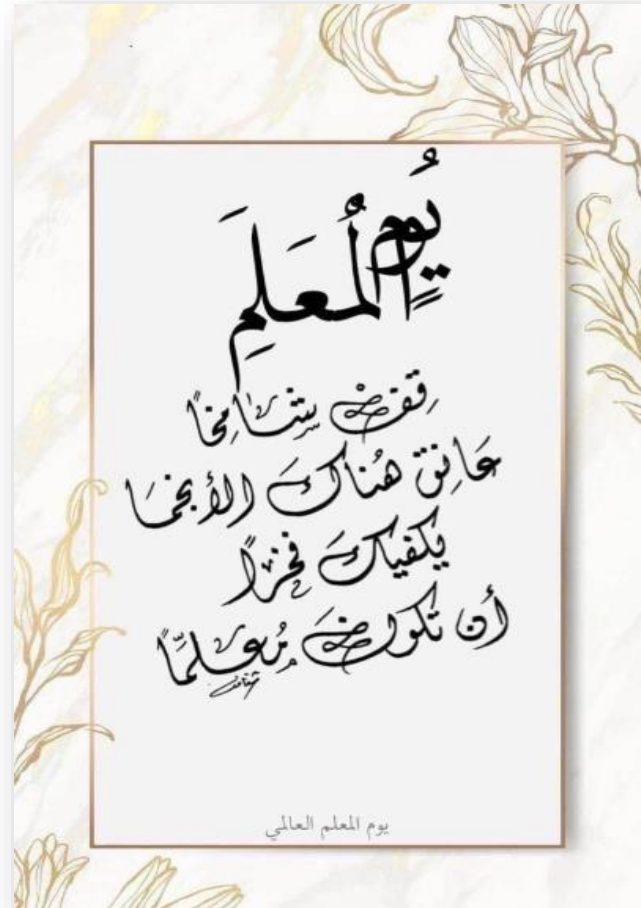 يُومِ
المُعَلِمَ
قِفْ شَامِخاً
عَانِق هُناكَ الأنجمَا
يَكفيكَ فَخراً
أن تكونَ مُعَلِّمًا
يوم المعلم العالمي